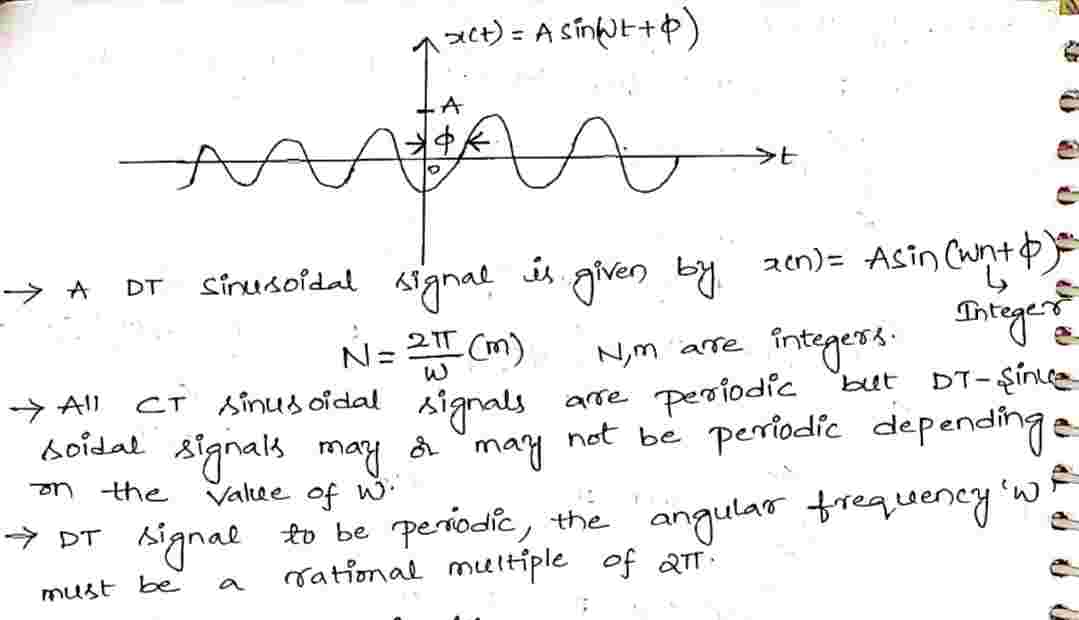 x(t) = A sin(ωt+ϕ)
A
ϕ
0
t
→ A DT sinusoidal signal is given by x(n) = A sin(ωn+ϕ)
Integer
N = 2π/ω (m) N,m are integers.
→ All CT sinusoidal signals are periodic but DT-sinu
soidal signals may or may not be periodic depending
on the value of ω.
→ DT signal to be periodic, the angular frequency 'ω'
must be a rational multiple of 2π.